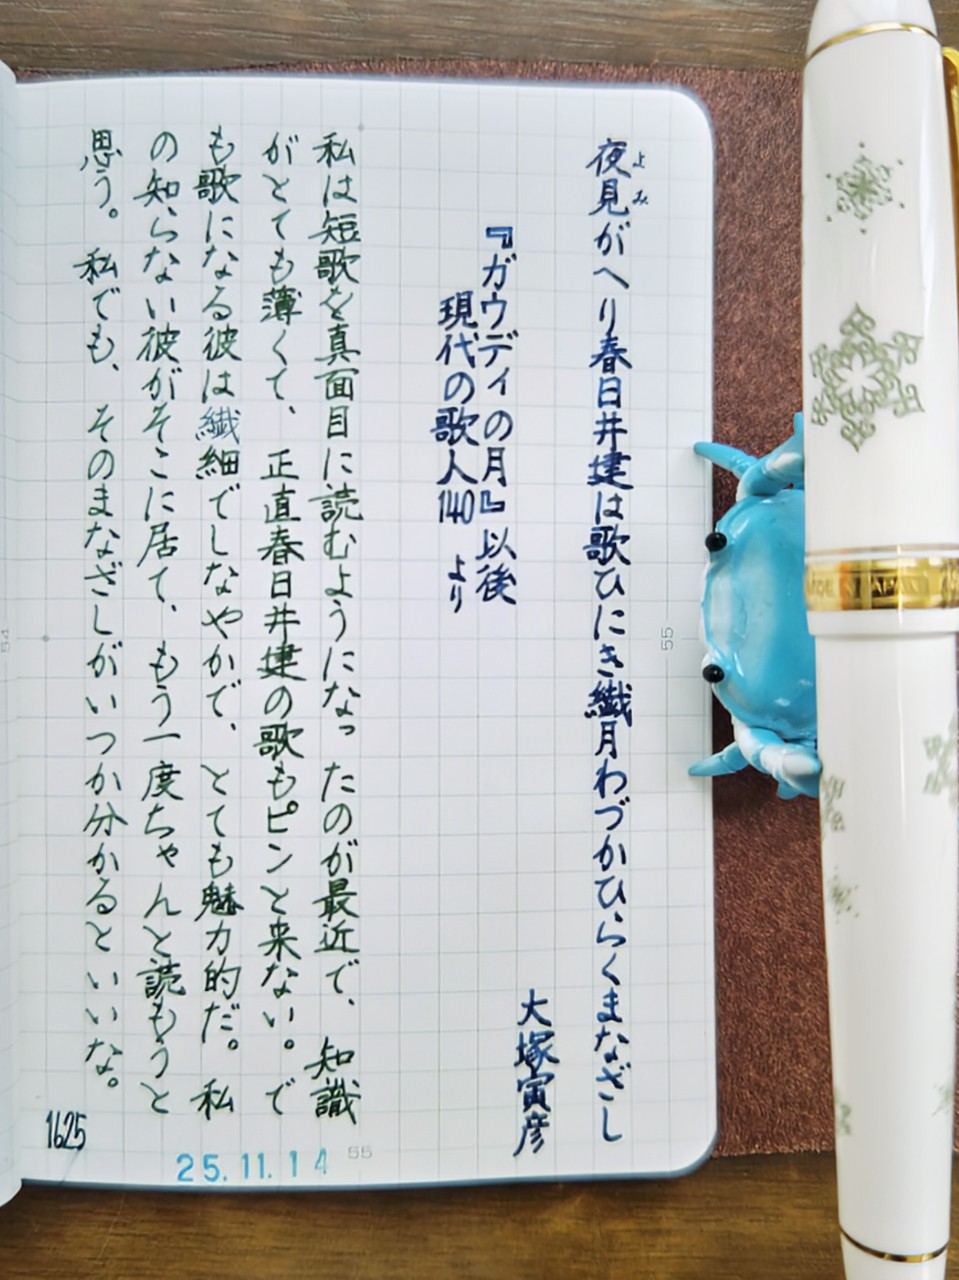 夜見がへり春日井建は歌ひにき繊月わづかひらくまなざし
よみ
大塚寅彦
『ガウディの月』以後
現代の歌人140 より
私は短歌を真面目に読むようになったのが最近で、知識
がとても薄くて、正直春日井建の歌もピンと来ない。で
も歌になる彼は繊細でしなやかで、とても魅力的だ。私
の知らない彼がそこに居て、もう一度ちゃんと読もうと
思う。私でも、そのまなざしがいつか分かるといいな。
1625
25.11.14
55
55
54